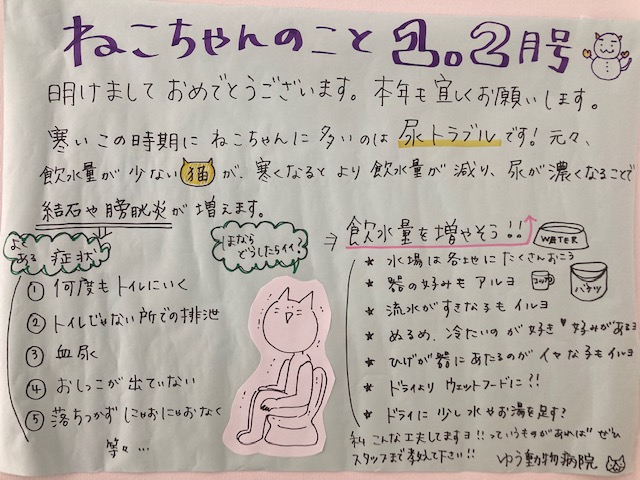 ねこちゃんのこと 1.2月号
明けまして おめでとうございます。本年も宜しくお願いします。
寒いこの時期に ねこちゃんに 多いのは 尿トラブルです! 元々、
飲水量が 少ない 猫 が、寒くなると より 飲水量が 減り、尿が濃くなることで
結石や膀胱炎が 増えます。
よく
ある 症状
① 何度もトイレにいく
② トイレじゃない所での排泄
③ 血尿
④ おしっこが 出ていない
⑤ 落ちつかず にゃおにゃおなく
等々…
ほなら
どうしたらイイ?
⇒ 飲水量を増やそう!!
WATER
★ 水場は各地にたくさんおこう
★ 器の好みも アルヨ
コップ
バケツ
★ 流水がすきな子も イルヨ
★ ぬるめ、冷たいのが 好き♥ 好みがあるヨ
★ ひげが器にあたるのが イヤな子も イルヨ
★ ドライより ウェットフードに?!
★ ドライに 少し水やお湯を足す?
私 こんな工夫してますヨ!!っていうものがあれば ぜひ
スタッフまで教えて下さい!!
ゆう動物病院